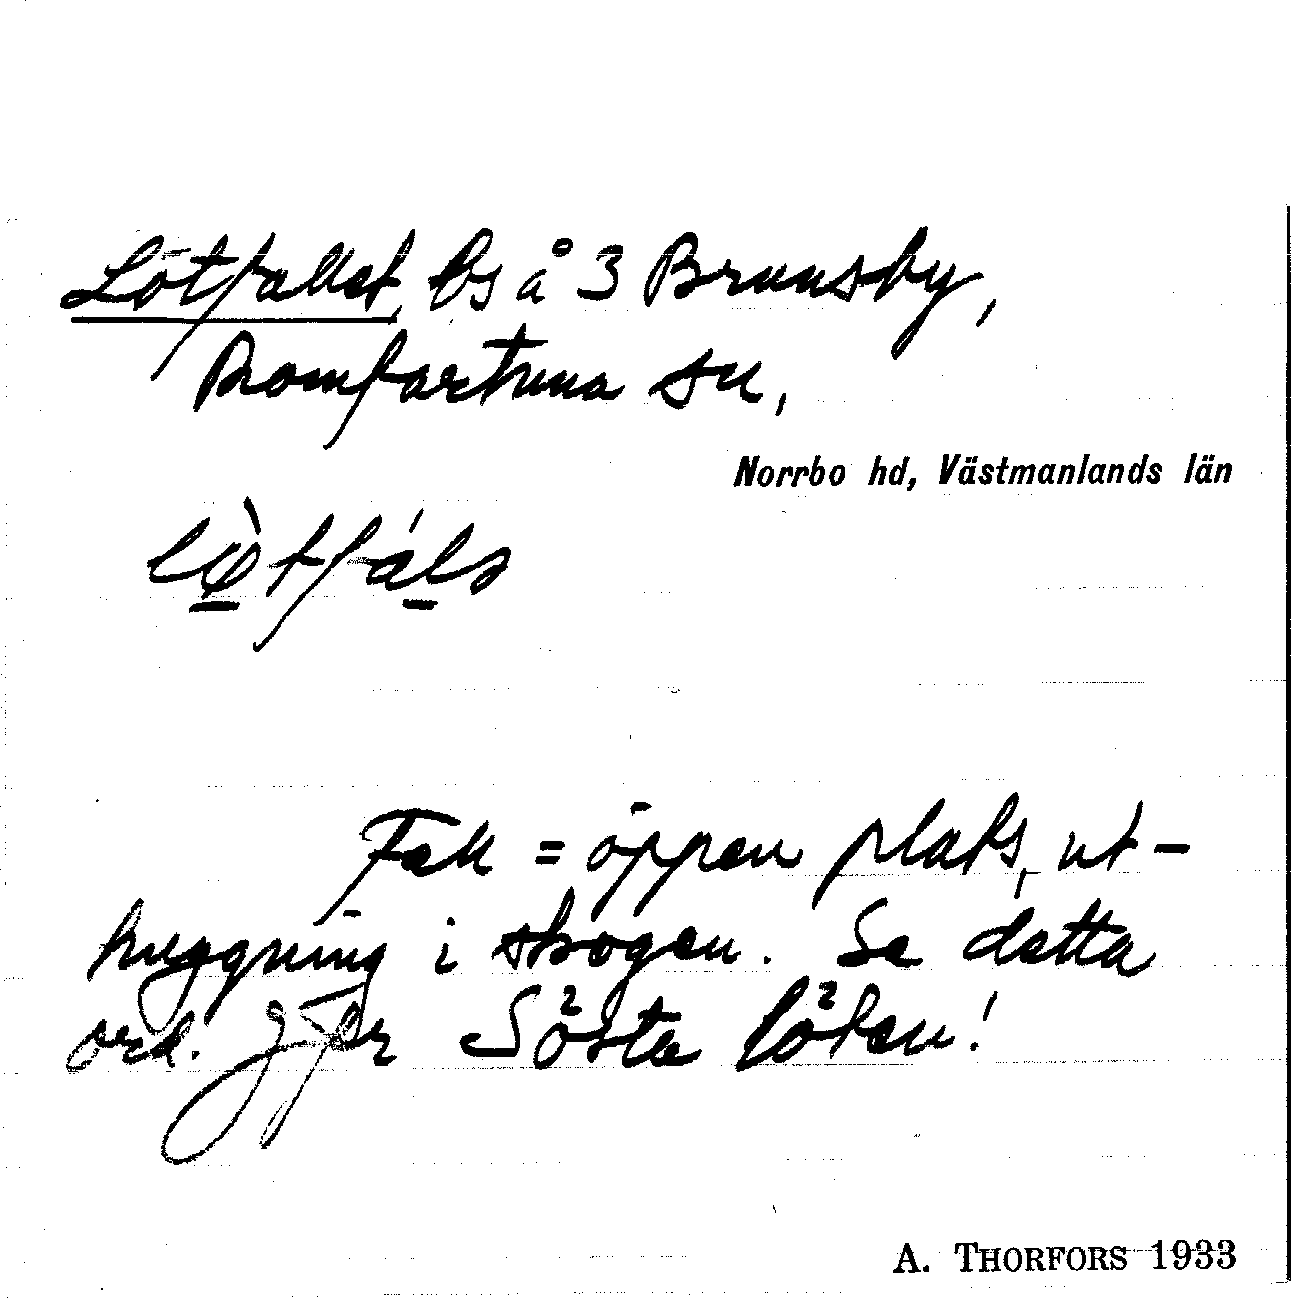 Lötfallet, ls å 3 Brunsby,
Romfartuna sn,
Norrbo hd, Västmanlands län
lø̀tfáls
Fall = öppen plats, ut-
huggning i skogen. Se detta
ord. Jfr Sösta löten!
A. THORFORS 1933